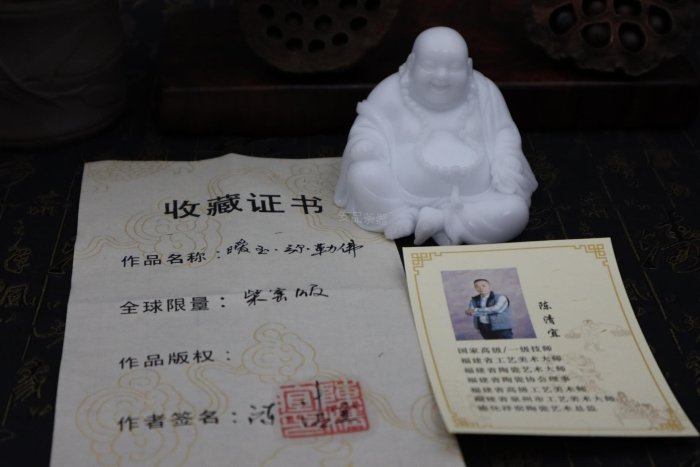 收藏证书
作品名称：暖玉·弥勒佛
全球限量：柴窑版
作品版权：
作者签名：陈清宜
陈清宜
国家高级/一级技师
福建省工艺美术大师
福建省陶瓷艺术大师
福建省陶瓷协会理事
福建省高级工艺美术师
福建省泉州市工艺美术大师